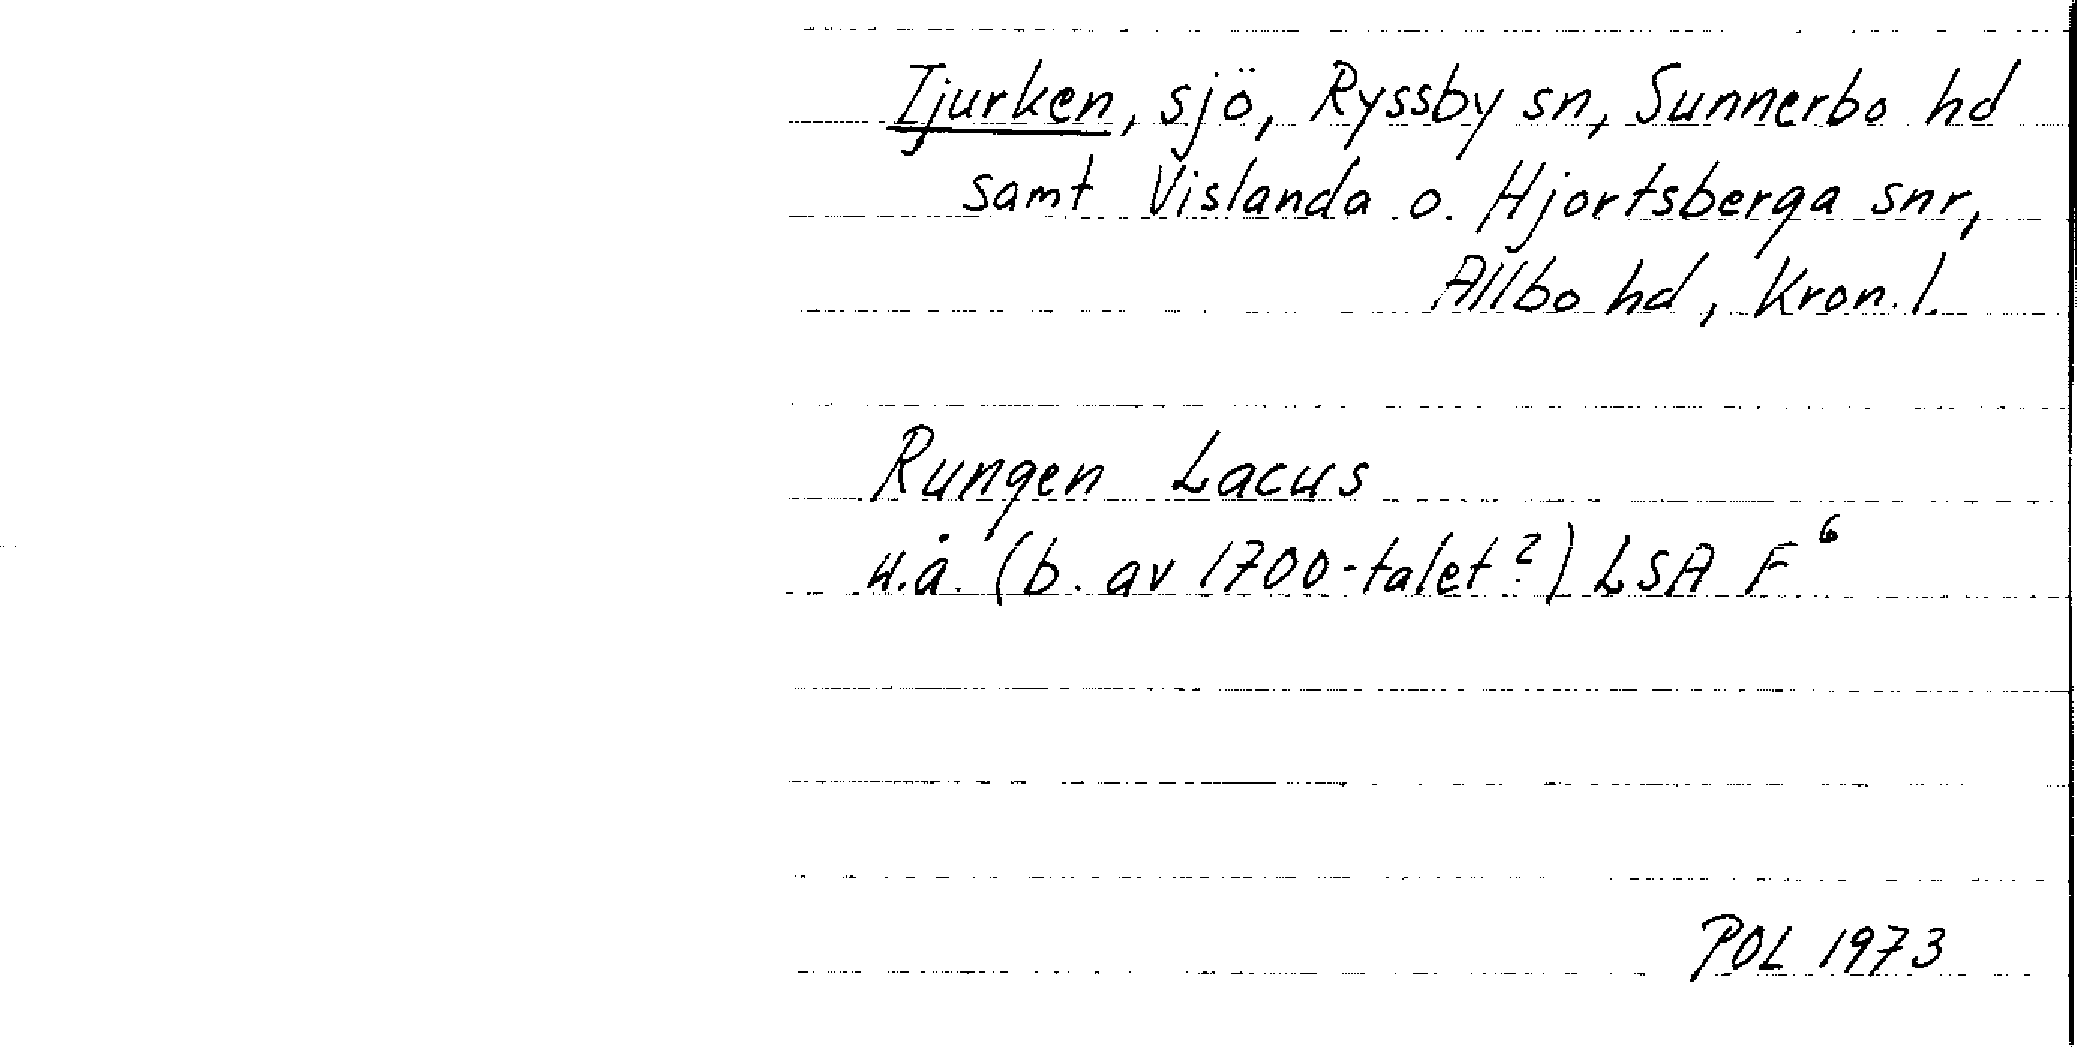 Tjurken, sjö, Ryssby sn, Sunnerbo hd
samt Vislanda o. Hjortsberga snr,
Allbo hd, Kron. l.
Rungen Lacus
u.å. (b. av 1700-talet?) LSA F⁶
POL 1973